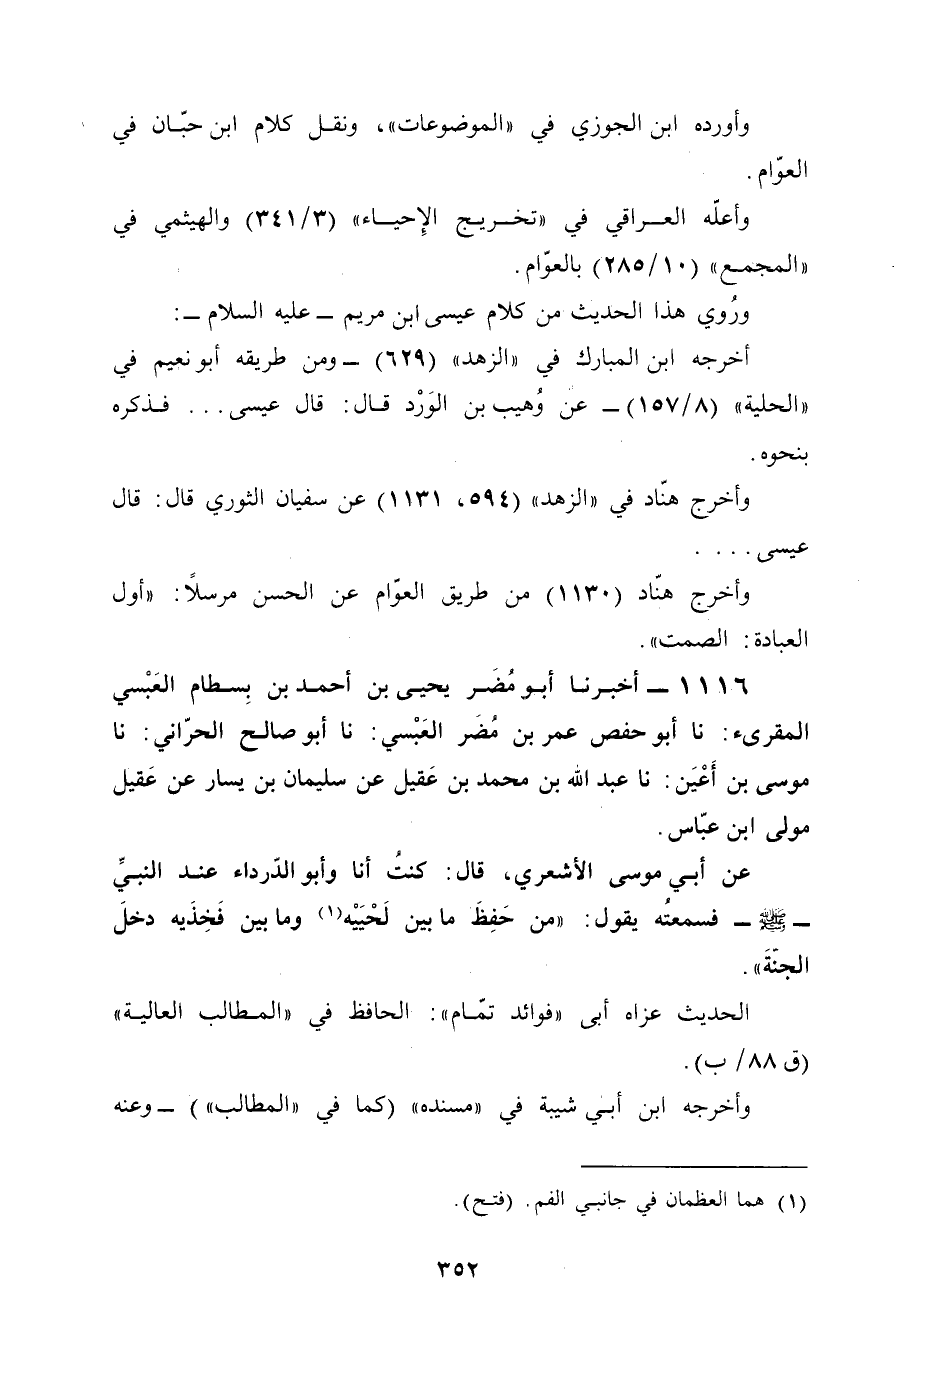 وأورده ابن الجوزي في «الموضوعات»، ونقل كلام ابن حبّان في
العوّام.
وأعلّه العراقي في «تخريج الإحياء» (٣٤١/٣) والهيثمي في
«المجمع» (٢٨٥/١٠) بالعوّام.
ورُوي هذا الحديث من كلام عيسى ابن مريم ــ عليه السلام ــ:
أخرجه ابن المبارك في «الزهد» (٦٢٩) ــ ومن طريقه أبو نعيم في
«الحلية» (١٥٧/٨) ــ عن وُهيب بن الوَرْد قال: قال عيسى... فذكره
بنحوه.
وأخرج هنّاد في «الزهد» (٥٩٤، ١١٣١) عن سفيان الثوري قال: قال
عيسى....
وأخرج هنّاد (١١٣٠) من طريق العوّام عن الحسن مرسلاً: «أول
العبادة: الصمت».
١١١٦ ــ أخبرنا أبو مُضَر يحيى بن أحمد بن بِسطام العَبْسي
المقرىء: نا أبو حفص عمر بن مُضَر العَبْسي: نا أبو صالح الحرّاني: نا
موسى بن أَعْيَن: نا عبد الله بن محمد بن عَقيل عن سليمان بن يسار عن عَقيل
مولى ابن عبّاس.
عن أبي موسى الأشعري، قال: كنتُ أنا وأبو الدّرداء عند النبيِّ
ــ ﷺ ــ فسمعتُه يقول: «من حَفِظَ ما بين لَحْيَيْه(١) وما بين فَخِذَيه دخلَ
الجنّةَ».
الحديث عزاه أبى «فوائد تمّام»: الحافظ في «المطالب العالية»
(ق ٨٨/ ب).
وأخرجه ابن أبي شيبة في «مسنده» (كما في «المطالب») ــ وعنه
(١) هما العظمان في جانبي الفم. (فتح).
٣٥٢